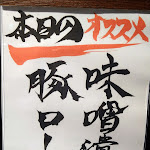 本日のオススメ
味噌漬
豚ロー